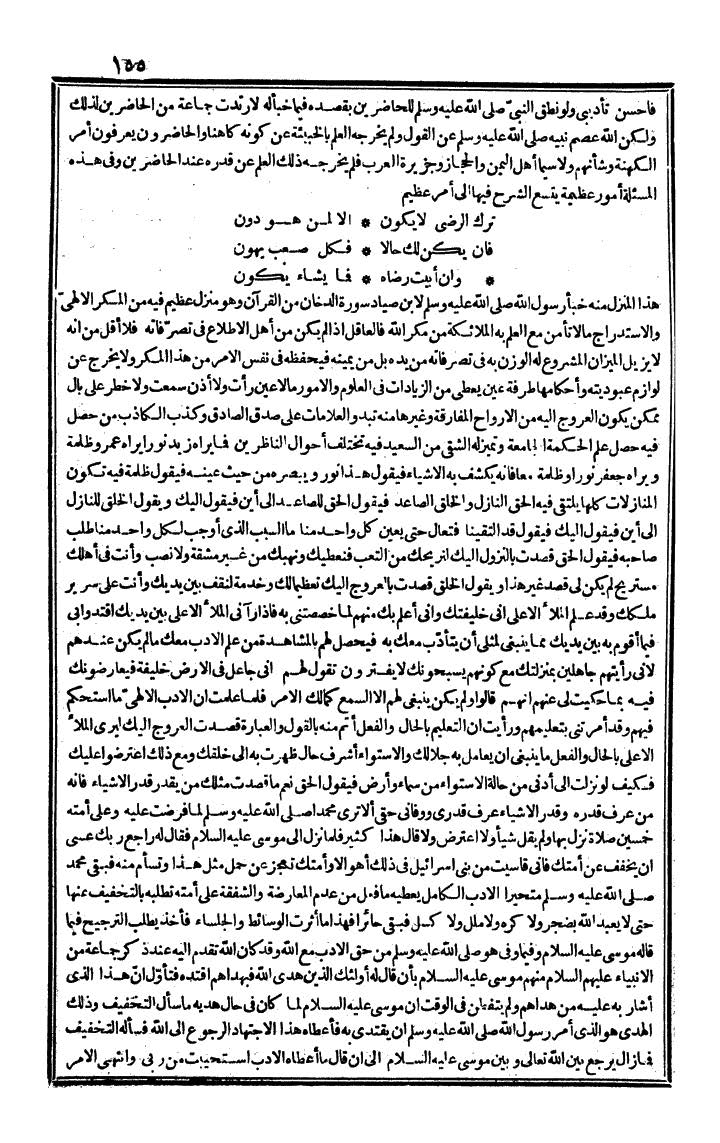 ١٥٥
فاحسن تأدبى ولو نطق النبىّ صلى الله عليه وسلم للحاضرين بقصده فيما خبأله لارتدت جماعة من الحاضرين لذلك
ولكن الله عصم نبيه صلى الله عليه وسلم عن القول ولم يخرجه العلم بالخبيئة عن كونه كاهنا والحاضرون يعرفون أمر
الكهنة وشأنهم ولاسيما أهل اليمن والحجاز وجزيرة العرب فلم يخرجه ذلك العلم عن قدره عند الحاضرين وفى هذه
المسئلة أمور عظيمة يتسع الشرح فيها الى أمر عظيم
ترك الرضى لايكون * الا لمن هو دون
فان يكن لك حالا * فكل صعب يهون
* وان أبيت رضاه * فما يشاء يكون
هذا المنزل منه خبأ رسول الله صلى الله عليه وسلم لابن صياد سورة الدخان من القرآن وهو منزل عظيم فيه من المكر الالهىّ
والاستدراج مالاتأمن مع العلم به الملائكة من مكر الله فالعاقل اذا لم يكن من أهل الاطلاع فى تصرّفاته فلا أقل من انه
لايزيل الميزان المشروع له الوزن به فى تصرفاته من يده بل من يمينه فيحفظه فى نفس الامر من هذا المكر ولا يخرج عن
لوازم عبوديته وأحكامها طرفة عين يعطى من الزيادات فى العلوم والامور مالاعين رأت ولا أذن سمعت ولا خطر على بال
ممكن يكون العروج اليه من الارواح المفارقة وغيرها منه تبدو العلامات على صدق الصادق وكذب الكاذب من حصل
فيه حصل علم الحكمة الجامعة وتميزله الشقى من السعيد فيه تختلف أحوال الناظرين فمايراه زيد نورا يراه عمرو ظلمة
ويراه جعفر نورا وظلمة معا فانه يكشف به الاشياء فيقول هذا نور ويبصره من حيث عينه فيقول ظلمة فيه تكون
المنازلات كلها يلتقى فيه الحق النازل والخلق الصاعد فيقول الحق للصاعد الى أين فيقول اليك ويقول الخلق للنازل
الى أين فيقول اليك فيقول قد التقينا فتعال حتى يعين كل واحد منا ما السبب الذى أوجب لكل واحد منا طلب
صاحبه فيقول الحق قصدت بالنزول اليك لنريحك من التعب فنعطيك ونهبك من غير مشقة ولا نصب وأنت فى أهلك
مستريح لم يكن لى قصد غير هذا ويقول الخلق قصدت بالعروج اليك تعظيما لك وخدمة لنقف بين يديك وأنت على سرير
ملكك وقد علم الملأ الاعلى انى خليفتك وانى أعلم بك منهم لما خصصتنى به فاذا رآنى الملأ الاعلى بين يديك اقتدوا بى
فيما أقوم به بين يديك مما ينبغى لمثلى أن يتأدّب معك به فيحصل لهم بالمشاهدة من علم الادب معك مالم يكن عندهم
لانى رأيتهم جاهلين بمنزلتك مع كونهم يسبحونك لايفترون تقول لهم انى جاعل فى الارض خليفة فيعارضونك
فيه بما حكيت لى عنهم انهم قالوا ولم يكن ينبغى لهم الا السمع كما لك الامر فلما علمت ان الادب الالهىّ ما استحكم
فيهم وقد أمرتنى بتعليمهم ورأيت ان التعليم بالحال والفعل أتم منه بالقول والعبارة قصدت العروج اليك ليرى الملأ
الاعلى بالحال والفعل ما ينبغى ان يعامل به جلالك والاستواء أشرف حال ظهرت به الى خلقك ومع ذلك اعترضوا عليك
فكيف لو نزلت الى أدنى من حالة الاستواء من سماء وأرض فيقول الحق نعم ما قصدت مثلك من يقدر قدر الاشياء فانه
من عرف قدره وقدر الاشياء عرف قدرى ووفانى حقى ألا ترى محمدا صلى الله عليه وسلم لما فرضت عليه وعلى أمته
خمسين صلاة نزل بها ولم يقل شيأ ولا اعترض ولا قال هذا كثير فلما نزل الى موسى عليه السلام فقال له راجع ربك عسى
ان يخفف عن أمتك فانى قاسيت من بنى اسرائيل فى ذلك أهوالا وأمتك تعجز عن حمل مثل هذا وتسأم منه فبقى محمد
صلى الله عليه وسلم متحيرا الادب الكامل يعطيه ما فعل من عدم المعارضة والشفقة على أمته تطلبه بالتخفيف عنها
حتى لا يعبد الله بضجر ولا كره ولا ملل ولا كسل فبقى حائرا فهذا ما أثرت الوسائط والجلساء فأخذ يطلب الترجيح فيما
قاله موسى عليه السلام وفيما وفى هو صلى الله عليه وسلم من حق الادب مع الله وقد كان الله تقدم اليه عند ذكر جماعة من
الانبياء عليهم السلام منهم موسى عليه السلام بأن قال له أولئك الذين هدى الله فبهداهم اقتده فتأوّل انّ هذا الذى
أشار به عليه من هداهم ولم يتفطن فى الوقت ان موسى عليه السلام لما كان فى حال هديه ما سأل التخفيف وذلك
الهدى هو الذى أمر رسول الله صلى الله عليه وسلم ان يقتدى به فأعطاه هذا الاجتهاد الرجوع الى الله فسأله التخفيف
فما زال يرجع بين الله تعالى وبين موسى عليه السلام الى ان قال ما أعطاه الادب استحييت من ربى وانتهى الامر